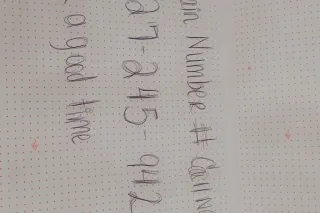 ain Number # Calling
27-245-942
a good time